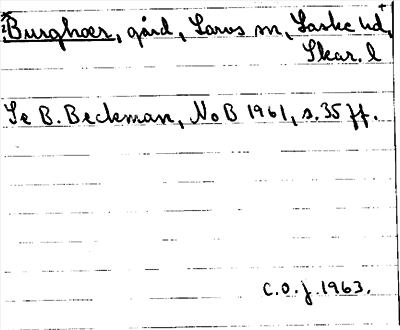 *Burghoer, gård, Larvs sn, Laske hd,
Skar. l
Se B. Beckman, NoB 1961, s. 35 ff.
C.O.J. 1963.